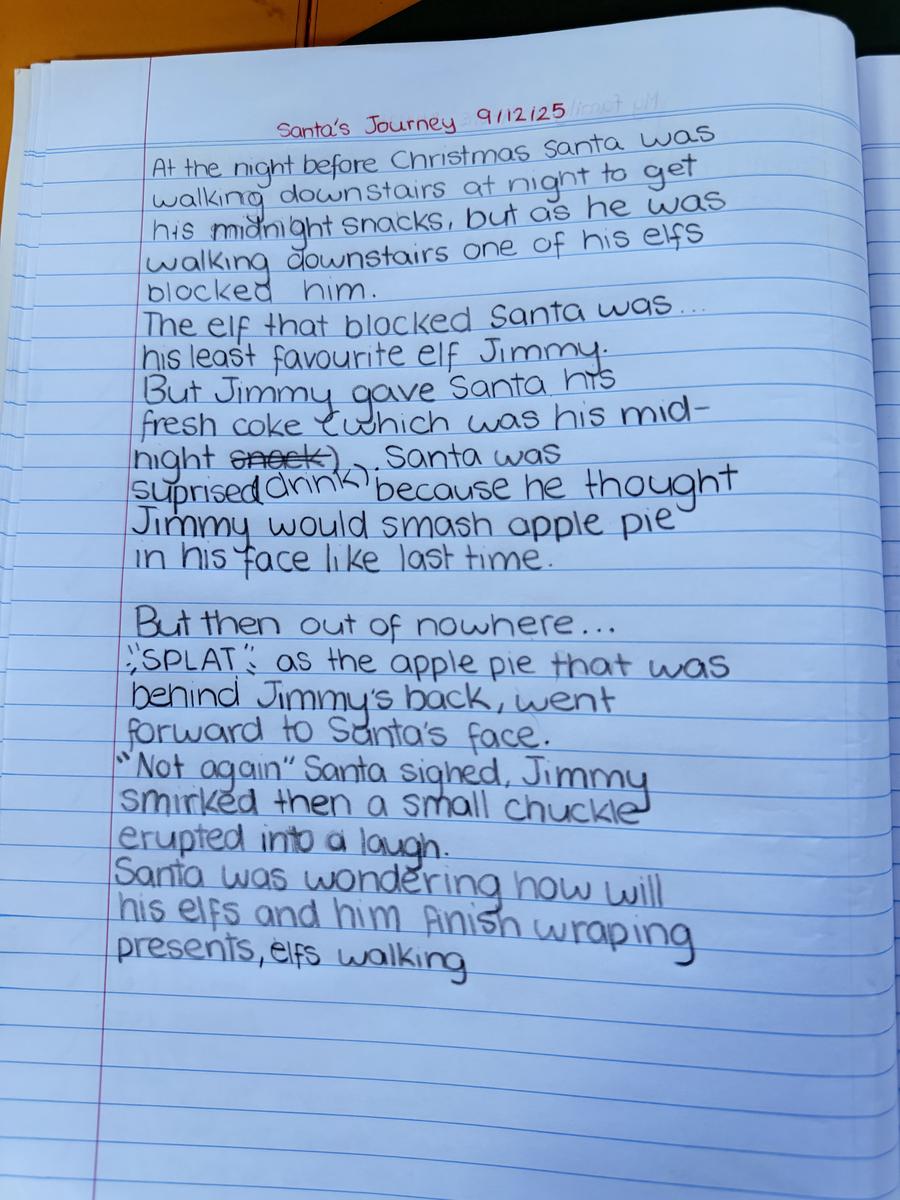 Santa's Journey 9/12/25
At the night before Christmas Santa was
walking downstairs at night to get
his midnight snacks, but as he was
walking downstairs one of his elfs
blocked him.
The elf that blocked Santa was...
his least favourite elf Jimmy.
But Jimmy gave Santa his
fresh coke (which was his mid-
night snack). Santa was
suprised drink) because he thought
Jimmy would smash apple pie
in his face like last time.
But then out of nowhere...
"SPLAT" as the apple pie that was
behind Jimmy's back, went
forward to Santa's face.
"Not again" Santa sighed, Jimmy
smirked then a small chuckle
erupted into a laugh.
Santa was wondering how will
his elfs and him finish wraping
presents, elfs walking